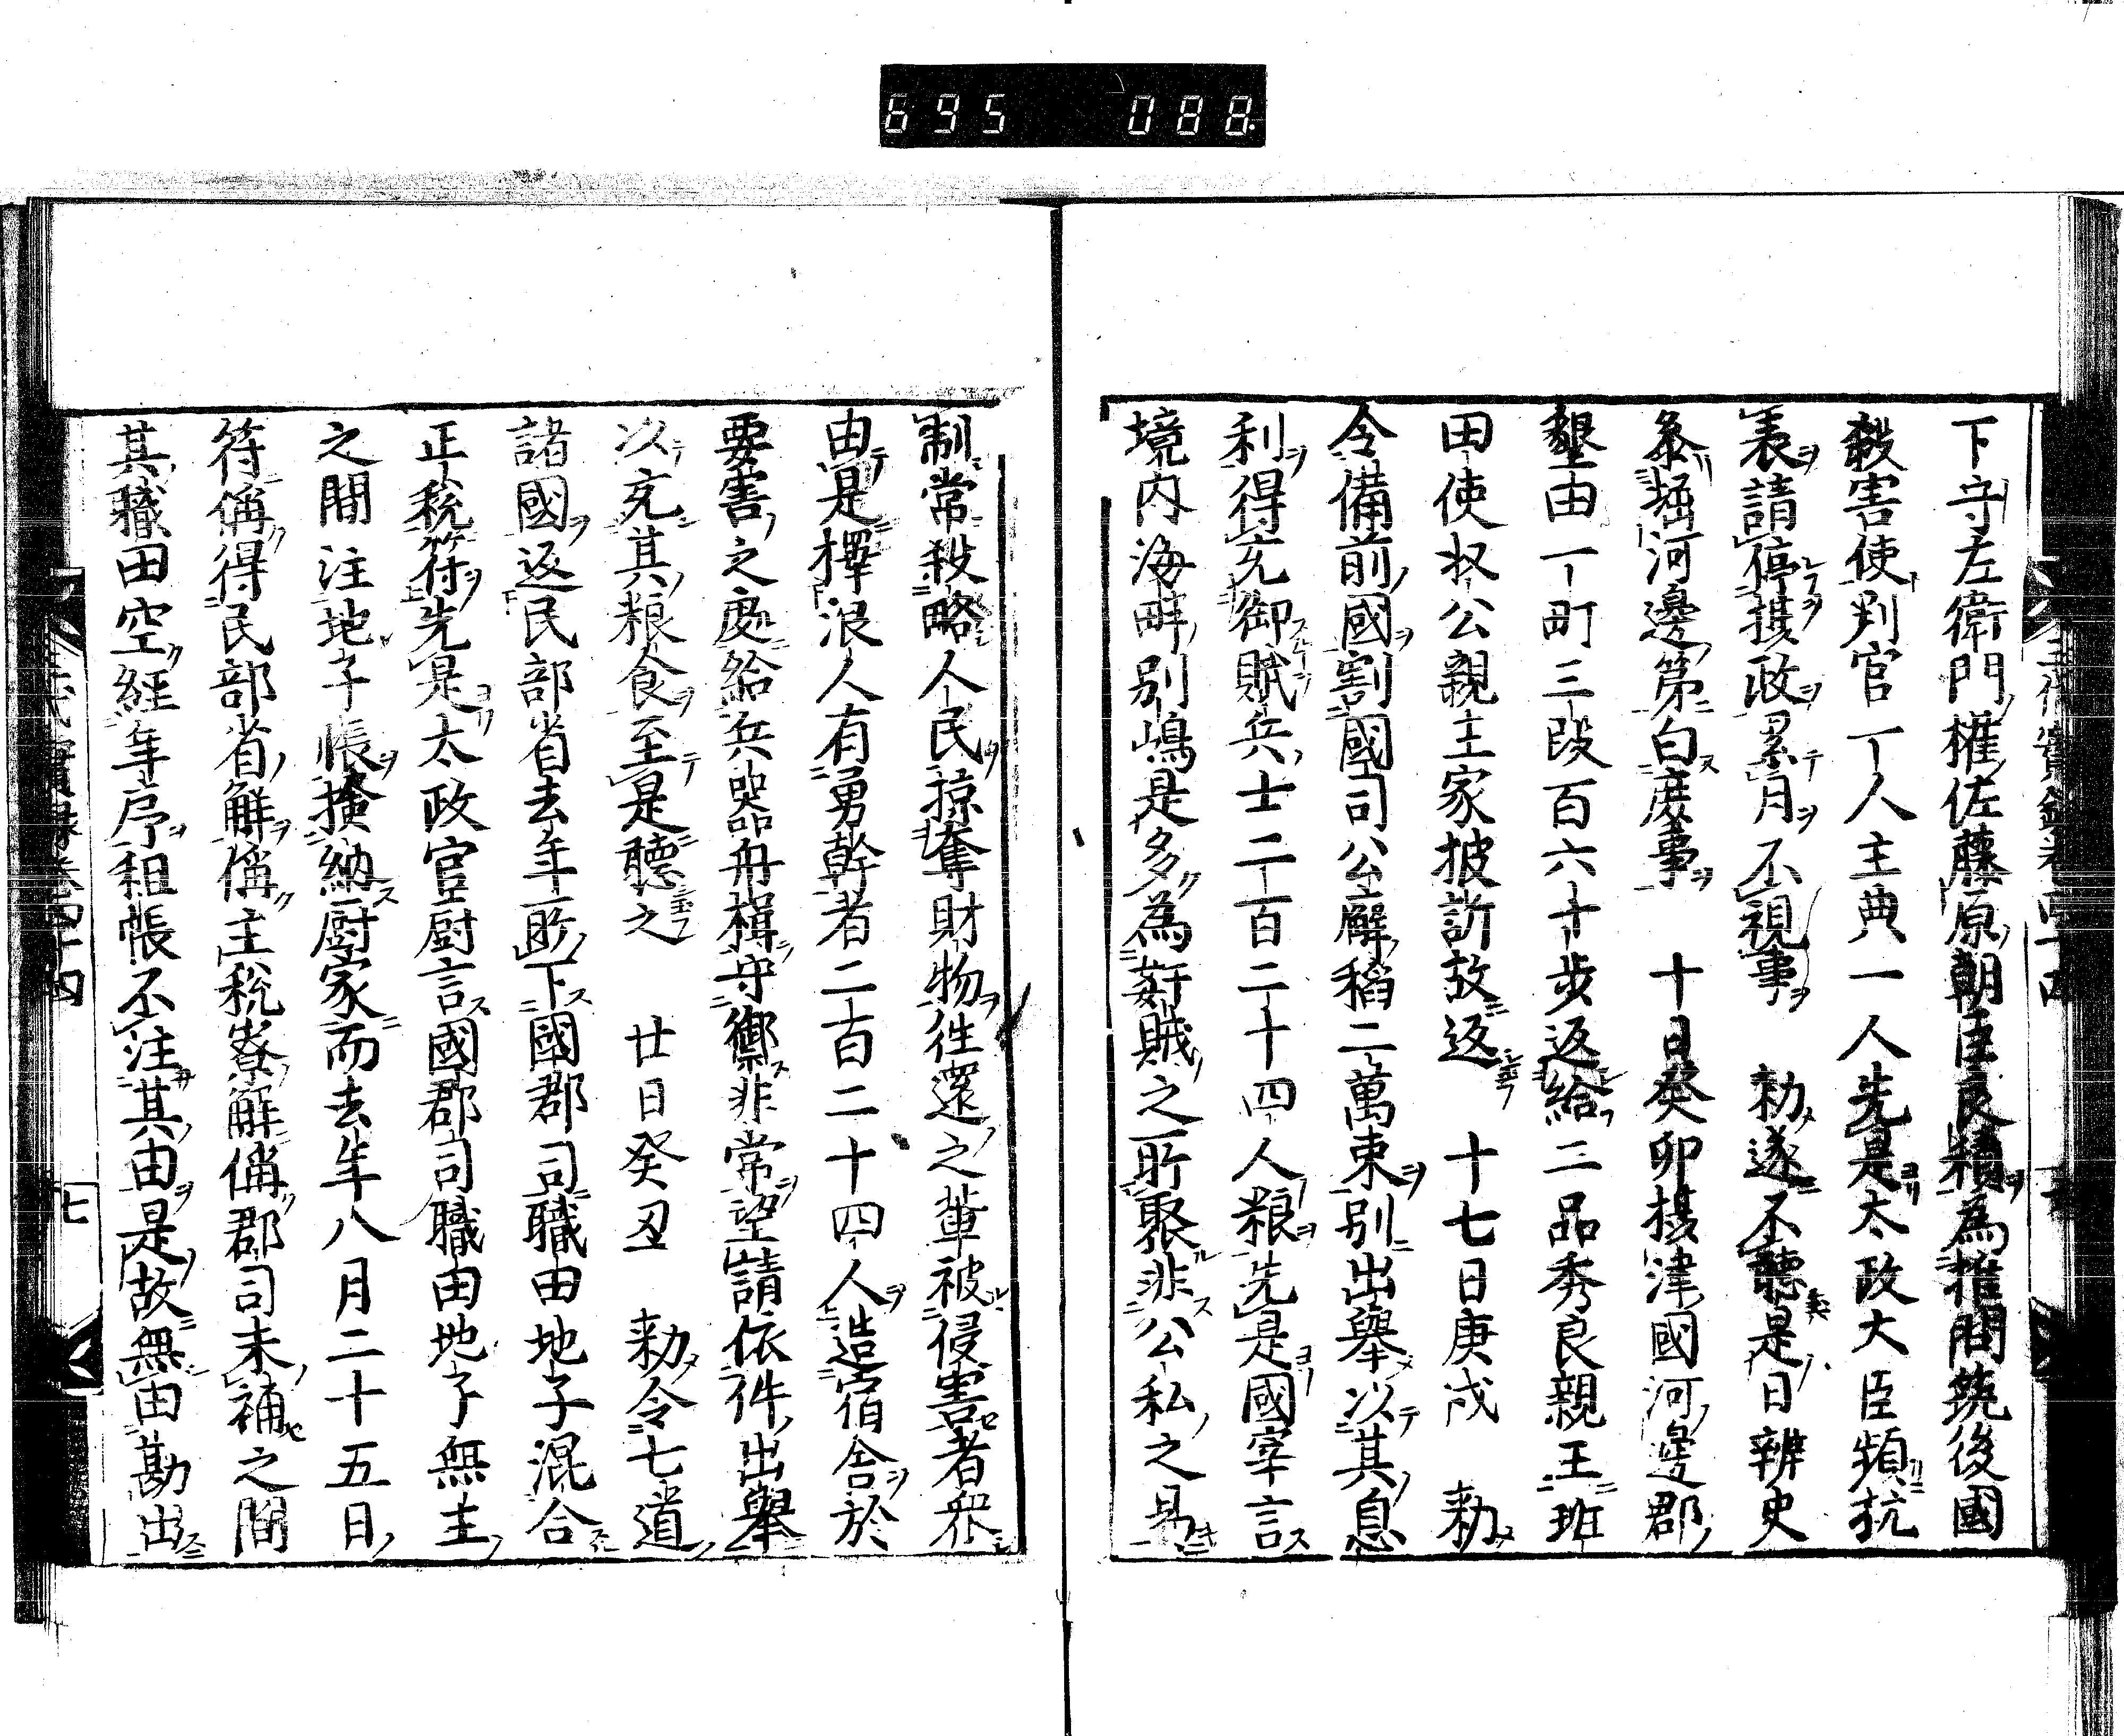 695 088
下守左衛門權佐藤原朝臣良積為推問筑後國
殺害使判官一人主典一人先是太政大臣頻抗
表請停攝政累月不視事 勑遂不聽是日辨史
參堀河邊第白庶事 十日癸卯攝津國河邊郡
墾田一町三段百六十步返給二品秀良親王班
田使收公親王家披訴故返 十七日庚戌 勑
令備前國割國司公廨稻二萬束別出舉以其息
利得充御賦兵士二百二十四人粮先是國宰言
境內海畔別嶋是多為姧賊之所聚非公私之易
制常殺略人民掠奪財物往還之輩被侵害者眾
由是擇浪人有勇幹者二百二十四人造宿舍於
要害之處給兵器舟楫守禦非常望請依件出舉
以充其粮食至是聽之 廿日癸丑 勑令七道
諸國返民部省去年所下國郡司職田地子混合
正稅符先是太政官厨言國郡司職田地子無主
之間注地子帳撿納厨家而去年八月二十五日
符偁得民部省解偁主稅寮解偁郡司未補之間
其職田空經年序租帳不注其由是故無由勘出
三代實錄卷四十四
七